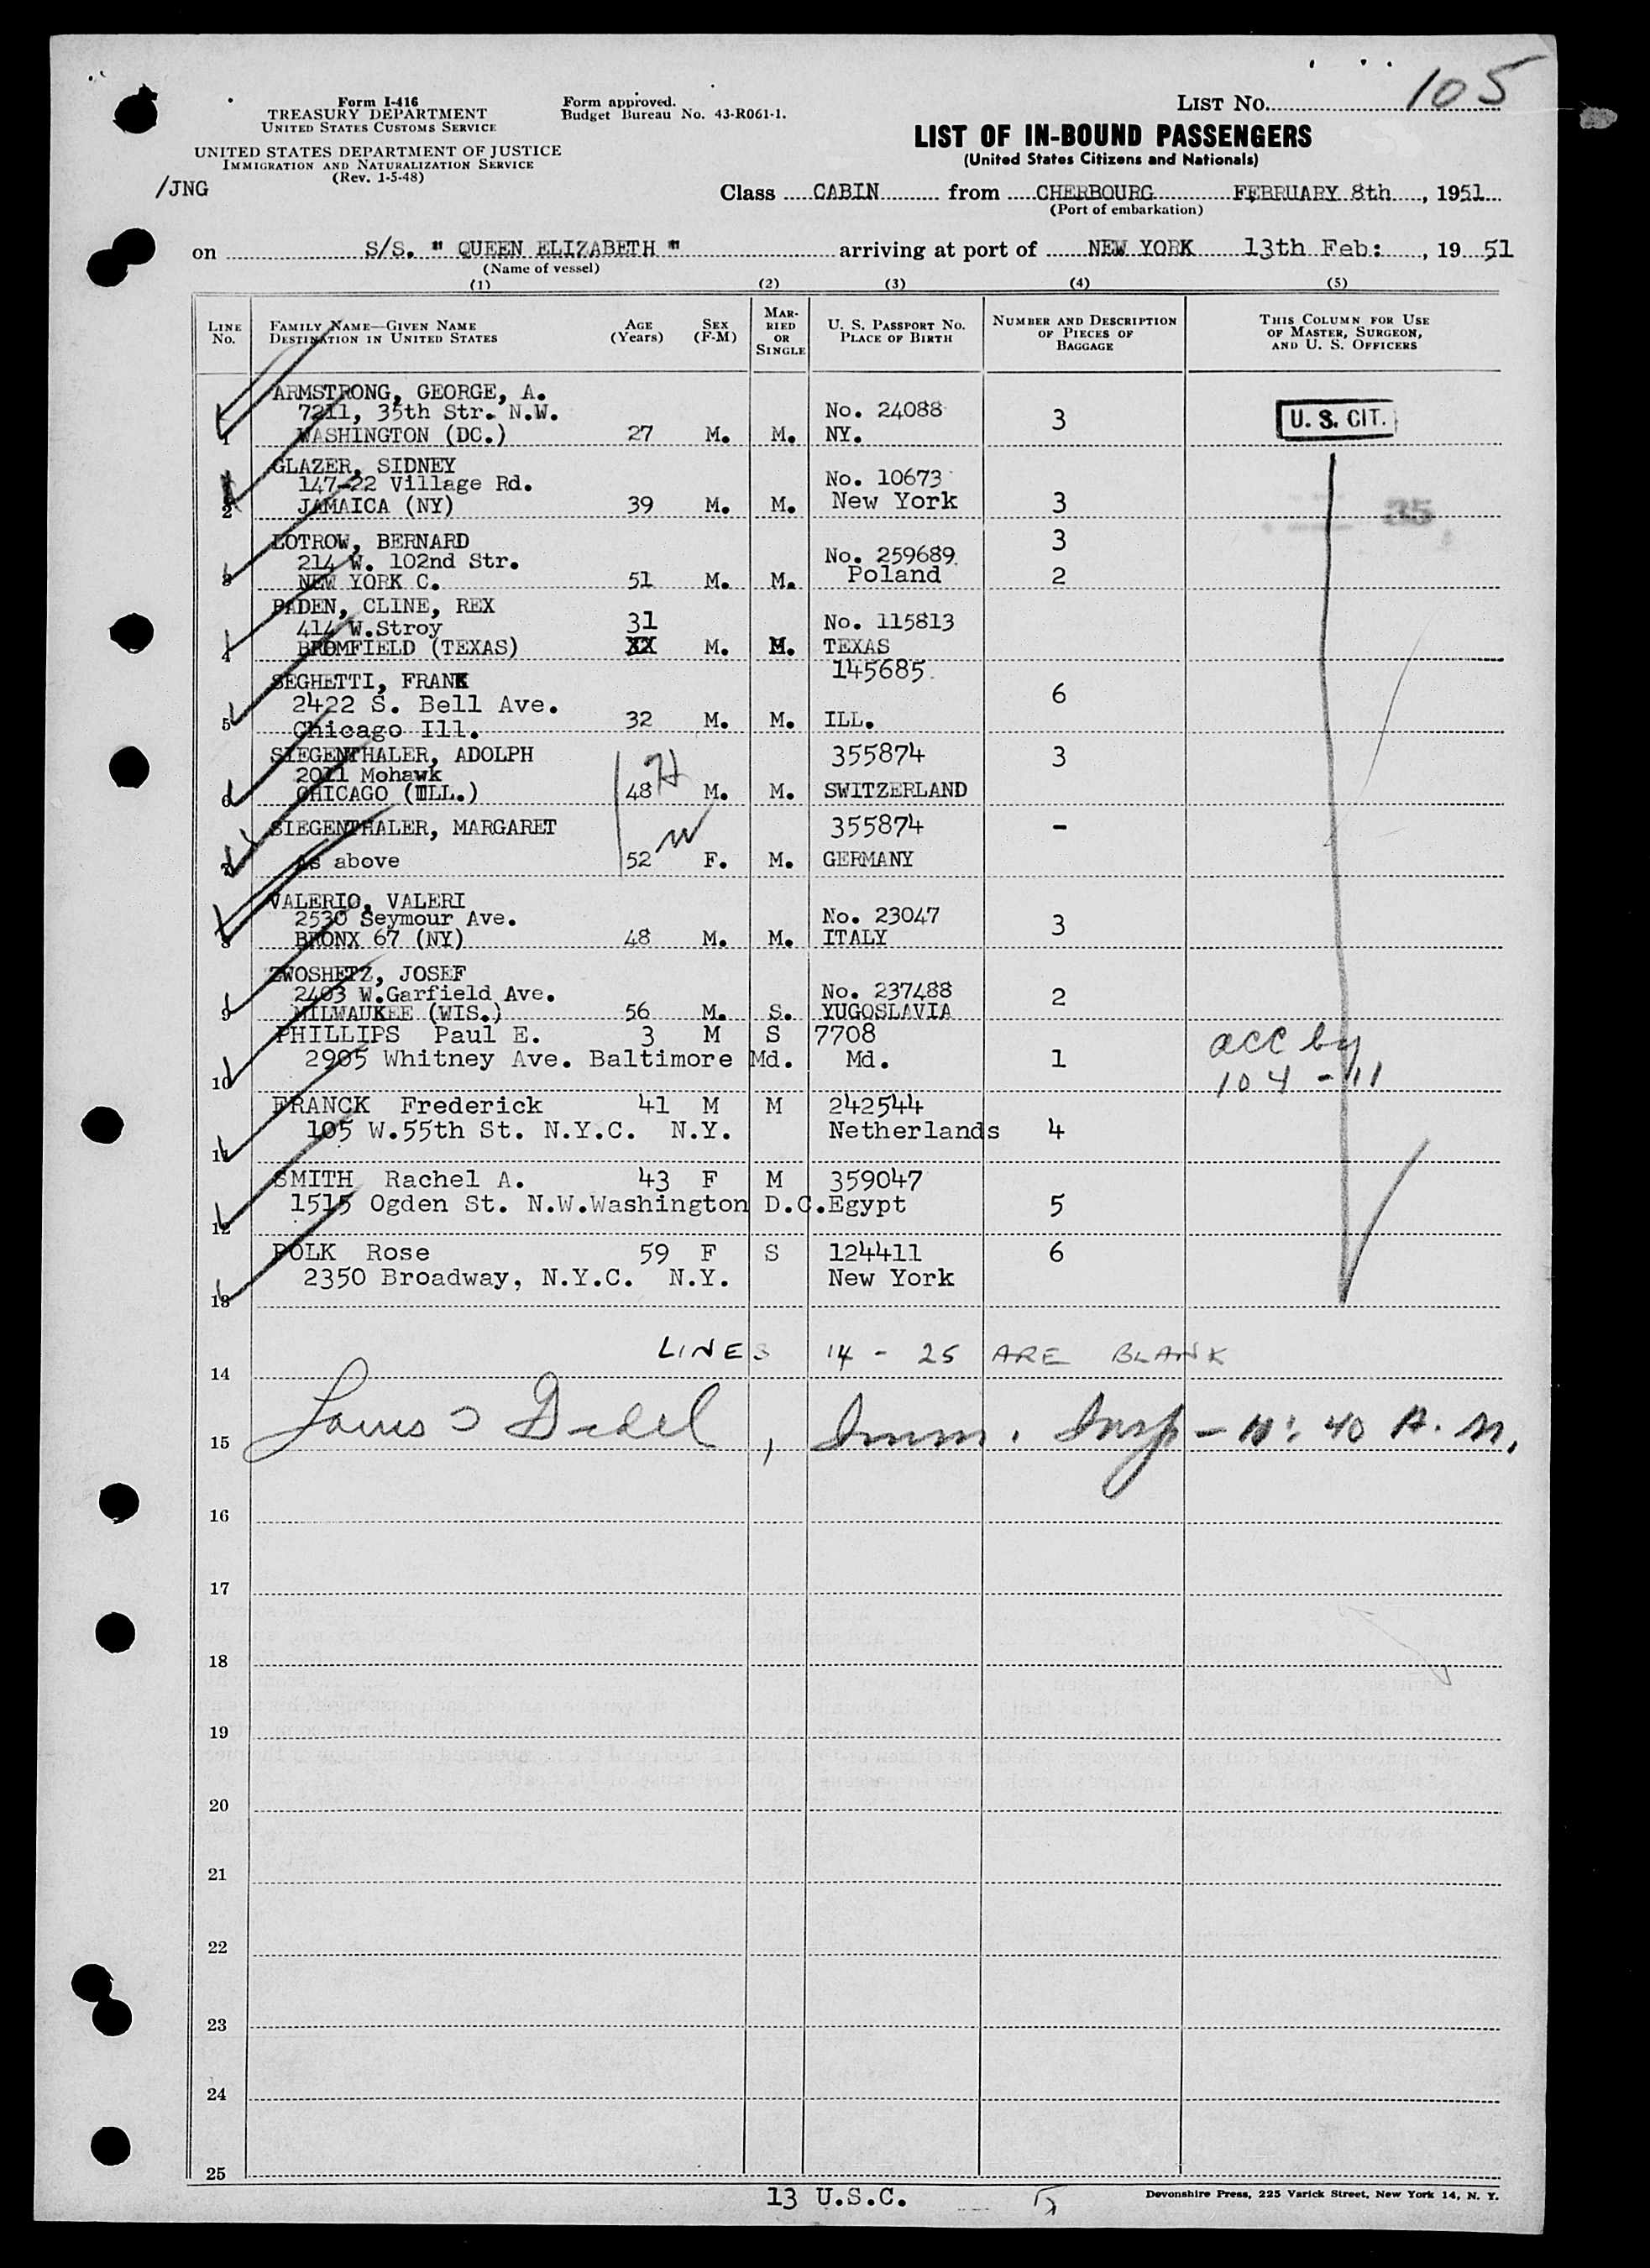 105
Form I-416
TREASURY DEPARTMENT
UNITED STATES CUSTOMS SERVICE
UNITED STATES DEPARTMENT OF JUSTICE
IMMIGRATION AND NATURALIZATION SERVICE
(Rev. 1-5-48)
Form approved.
Budget Bureau No. 43-R061-1.
LIST NO.
LIST OF IN-BOUND PASSENGERS
(United States Citizens and Nationals)
/JNG
Class CABIN from CHERBOURG FEBRUARY 8th, 1951
(Port of embarkation)
on S/S. " QUEEN ELIZABETH " arriving at port of NEW YORK 13th Feb: , 19 51
(Name of vessel)
(1) (2) (3) (4) (5)
LINE NO. FAMILY NAME—GIVEN NAME DESTINATION IN UNITED STATES AGE (Years) SEX (F-M) MARRIED OR SINGLE U. S. PASSPORT NO. PLACE OF BIRTH NUMBER AND DESCRIPTION OF PIECES OF BAGGAGE THIS COLUMN FOR USE OF MASTER, SURGEON, AND U. S. OFFICERS
ARMSTRONG, GEORGE, A.
7211, 35th Str. N.W. No. 24088 3 U. S. CIT.
1 WASHINGTON (DC.) 27 M. M. NY.
GLAZER, SIDNEY
147-22 Village Rd. No. 10673
2 JAMAICA (NY) 39 M. M. New York 3
35
LOTROW, BERNARD 3
214 W. 102nd Str. No. 259689.
3 NEW YORK C. 51 M. M. Poland 2
PADEN, CLINE, REX
414 W.Stroy 31 No. 115813
4 BROMFIELD (TEXAS) XX M. M. TEXAS
SEGHETTI, FRANK 145685.
2422 S. Bell Ave. 6
5 Chicago Ill. 32 M. M. ILL.
SIEGENTHALER, ADOLPH 355874 3
2011 Mohawk H
6 CHICAGO (ILL.) 48 M. M. SWITZERLAND
SIEGENTHALER, MARGARET 355874 -
W
7 As above 52 F. M. GERMANY
VALERIO, VALERI
2530 Seymour Ave. No. 23047 3
8 BRONX 67 (NY) 48 M. M. ITALY
ZWOSHETZ, JOSEF
2403 W.Garfield Ave. No. 237488 2
9 MILWAUKEE (WIS.) 56 M. S. YUGOSLAVIA
PHILLIPS Paul E. 3 M S 7708 acc by
2905 Whitney Ave. Baltimore Md. Md. 1
10 104 - 11
FRANCK Frederick 41 M M 242544
105 W.55th St. N.Y.C. N.Y. Netherlands 4
11
SMITH Rachel A. 43 F M 359047
1515 Ogden St. N.W.Washington D.C.Egypt 5
12
POLK Rose 59 F S 124411 6
2350 Broadway, N.Y.C. N.Y. New York
13
LINES 14 - 25 ARE BLANK
14
15 Louis , Imm. Insp - 11:40 A.M.
16
17
18
19
20
21
22
23
24
25
13 U.S.C.
Devonshire Press, 225 Varick Street, New York 14, N. Y.